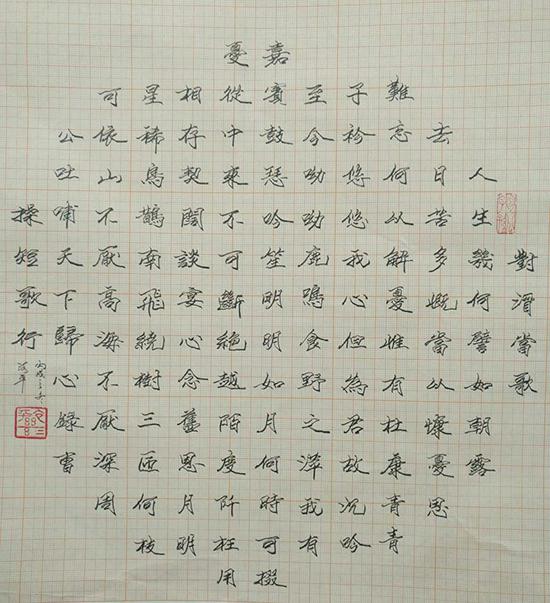 對酒當歌
人生幾何譬如朝露
去日苦多慨當以慷憂思
難忘何以解憂惟有杜康青青
子衿悠悠我心但為君故沉吟
至今呦呦鹿鳴食野之萍我有
嘉賓鼓瑟吟笙明明如月何時可掇
憂從中來不可斷絕越陌度阡枉用
相存契闊談宴心念舊恩月明
星稀烏鵲南飛繞樹三匝何枝
可依山不厭高海不厭深周
公吐哺天下歸心錄曹
操短歌行
丙戌之冬